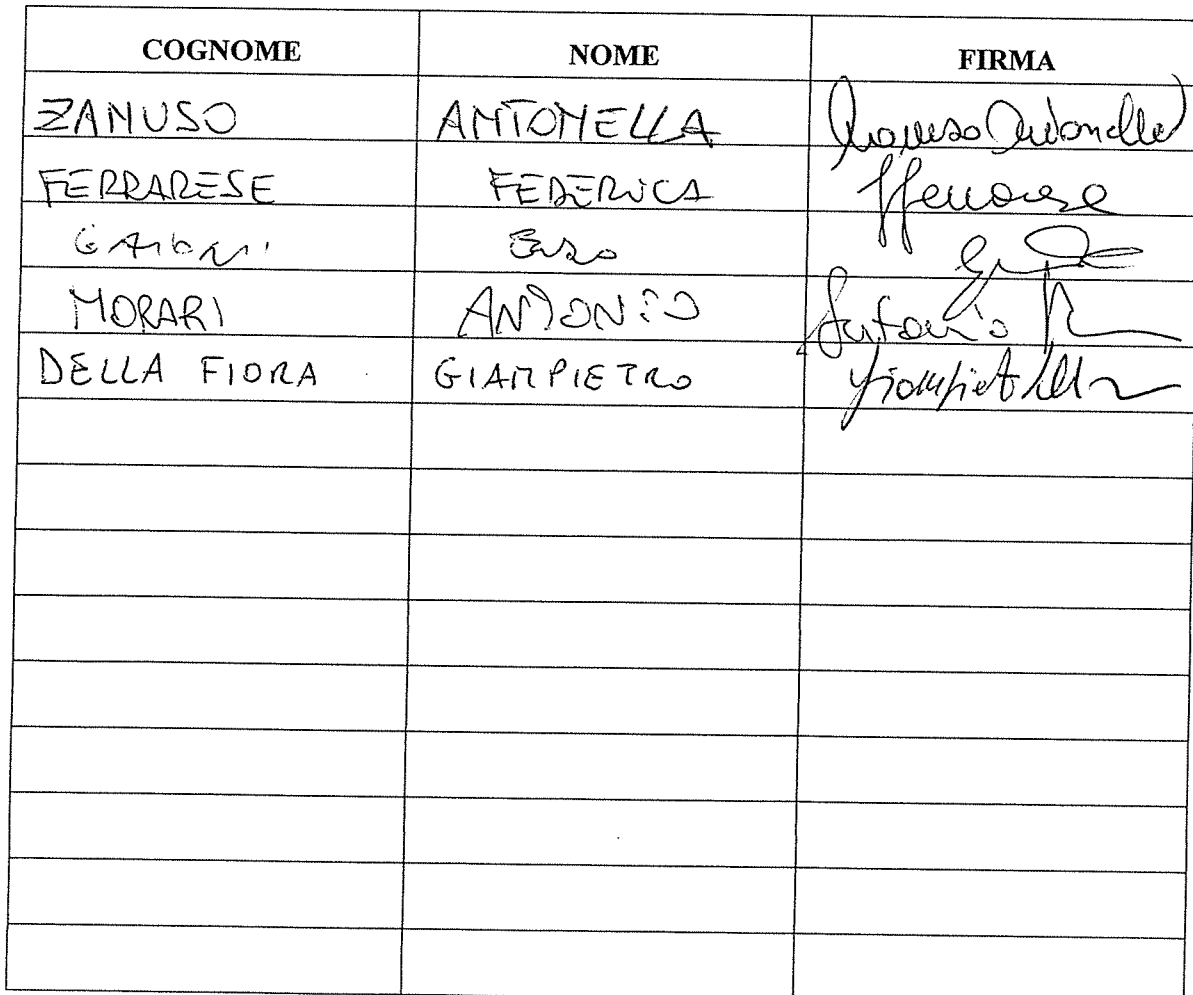 COGNOME NOME FIRMA
ZANUSO ANTONELLA Zanuso Antonella
FERRARESE FEDERICA FFerrarese
MORARI ANTONIO Antonio
DELLA FIORA GIAMPIETRO Giampietro